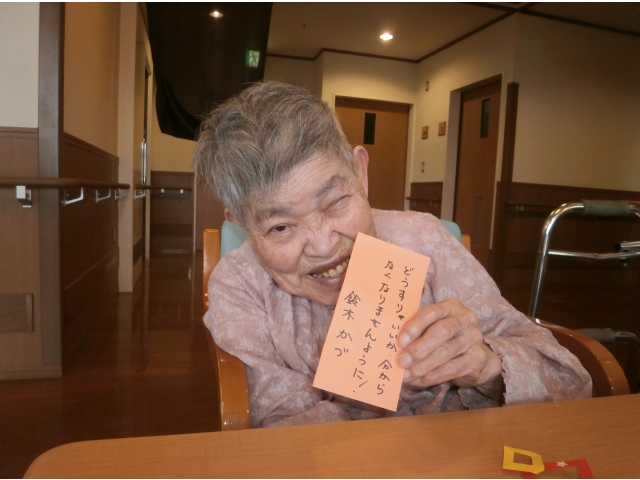 どうすりゃいいか 分から
なくなりませんように!
鈴木 かづ